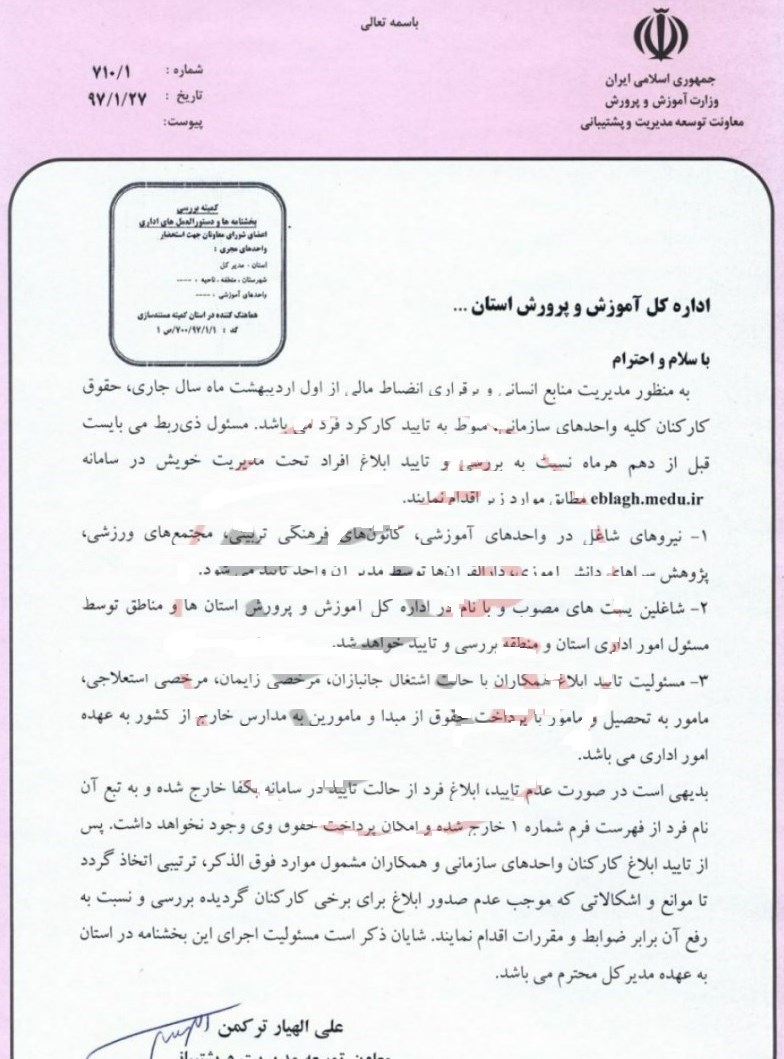 باسمه تعالی
جمهوری اسلامی ایران
وزارت آموزش و پرورش
معاونت توسعه مدیریت و پشتیبانی
شماره : ۷۱۰/۱
تاریخ : ۹۷/۱/۲۷
پیوست:
کمیته بررسی
بخشنامه ها و دستورالعمل های اداری
اعضای شورای معاونان جهت استحضار
واحدهای مجری :
استان ، مدیر کل
شهرستان ، منطقه ، ناحیه ، -----
واحدهای آموزشی ، -----
هماهنگ کننده در استان کمیته مستندسازی
کد : ۷۰۰/۹۷/۱/۱/ص ۱
اداره کل آموزش و پرورش استان ...
با سلام و احترام
به منظور مدیریت منابع انسانی و برقراری انضباط مالی از اول اردیبهشت ماه سال جاری، حقوق
کارکنان کلیه واحدهای سازمانی، منوط به تایید کارکرد فرد می باشد. مسئول ذی‌ربط می بایست
قبل از دهم هرماه نسبت به بررسی و تایید ابلاغ افراد تحت مدیریت خویش در سامانه
eblagh.medu.ir مطابق موارد زیر اقدام نمایند.
۱- نیروهای شاغل در واحدهای آموزشی، کانون‌های فرهنگی تربیتی، مجتمع‌های ورزشی،
پژوهش سراهای دانش آموزی، دارالقرآن‌ها توسط مدیران واحد تایید می شود.
۲- شاغلین پست های مصوب و با نام در اداره کل آموزش و پرورش استان ها و مناطق توسط
مسئول امور اداری استان و منطقه بررسی و تایید خواهد شد.
۳- مسئولیت تایید ابلاغ همکاران با حالت اشتغال جانبازان، مرخصی زایمان، مرخصی استعلاجی،
مامور به تحصیل و مامور با پرداخت حقوق از مبدا و مامورین به مدارس خارج از کشور به عهده
امور اداری می باشد.
بدیهی است در صورت عدم تایید، ابلاغ فرد از حالت تایید در سامانه بکفا خارج شده و به تبع آن
نام فرد از فهرست فرم شماره ۱ خارج شده و امکان پرداخت حقوق وی وجود نخواهد داشت. پس
از تایید ابلاغ کارکنان واحدهای سازمانی و همکاران مشمول موارد فوق الذکر، ترتیبی اتخاذ گردد
تا موانع و اشکالاتی که موجب عدم صدور ابلاغ برای برخی کارکنان گردیده بررسی و نسبت به
رفع آن برابر ضوابط و مقررات اقدام نمایند. شایان ذکر است مسئولیت اجرای این بخشنامه در استان
به عهده مدیرکل محترم می باشد.
علی الهیار ترکمن
معاون توسعه مدیریت و پشتیبانی